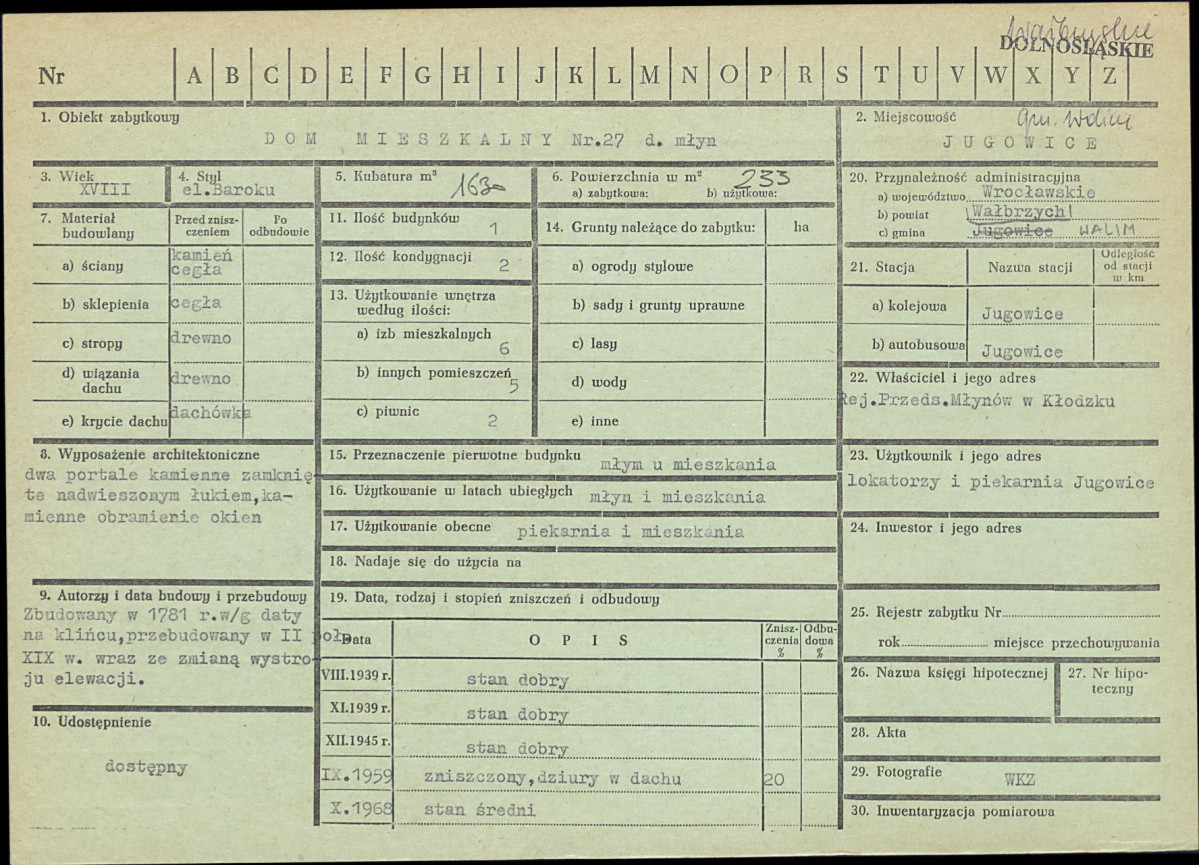 wałbrzyskie
DOLNOŚLĄSKIE
Nr A B C D E F G H I J K L M N O P R S T U V W X Y Z
1. Obiekt zabytkowy
DOM MIESZKALNY Nr.27 d. młyn
2. Miejscowość
JUGOWICE
3. Wiek
XVIII
4. Styl
el.Baroku
5. Kubatura m³
1630
6. Powierzchnia w m² 233
a) zabytkowa: b) użytkowa:
20. Przynależność administracyjna
a) województwo Wrocławskie
b) powiat Wałbrzych
c) gmina Jugowice WALIM
7. Materiał budowlany
Przed zniszczeniem
Po odbudowie
a) ściany kamień cegła
b) sklepienia cegła
c) stropy drewno
d) wiązania dachu drewno
e) krycie dachu dachówka
11. Ilość budynków 1
12. Ilość kondygnacji 2
13. Użytkowanie wnętrza według ilości:
a) izb mieszkalnych 6
b) innych pomieszczeń 5
c) piwnic 2
14. Grunty należące do zabytku: ha
a) ogrody stylowe
b) sady i grunty uprawne
c) lasy
d) wody
e) inne
21. Stacja Nazwa stacji Odległość od stacji w km
a) kolejowa Jugowice
b) autobusowa Jugowice
22. Właściciel i jego adres
Rej.Przeds.Młynów w Kłodzku
8. Wyposażenie architektoniczne
dwa portale kamienne zamknię-
te nadwieszonym łukiem,ka-
mienne obramienie okien
15. Przeznaczenie pierwotne budynku młym u mieszkania
16. Użytkowanie w latach ubiegłych młyn i mieszkania
17. Użytkowanie obecne piekarnia i mieszkania
18. Nadaje się do użycia na
23. Użytkownik i jego adres
lokatorzy i piekarnia Jugowice
24. Inwestor i jego adres
9. Autorzy i data budowy i przebudowy
Zbudowany w 1781 r.w/g daty
na klińcu,przebudowany w II poł.
XIX w. wraz ze zmianą wystro-
ju elewacji.
10. Udostępnienie
dostępny
19. Data, rodzaj i stopień zniszczeń i odbudowy
Data OPIS Zniszczenia % Odbudowa %
VIII.1939 r. stan dobry
XI.1939 r. stan dobry
XII.1945 r. stan dobry
IX.1959 zniszczony,dziury w dachu 20
X.1968 stan średni
25. Rejestr zabytku Nr
rok miejsce przechowywania
26. Nazwa księgi hipotecznej
27. Nr hipoteczny
28. Akta
29. Fotografie WKZ
30. Inwentaryzacja pomiarowa